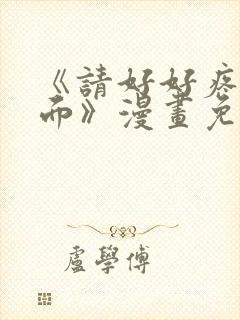 《請好好疼
而》漫畫免
盧學傅